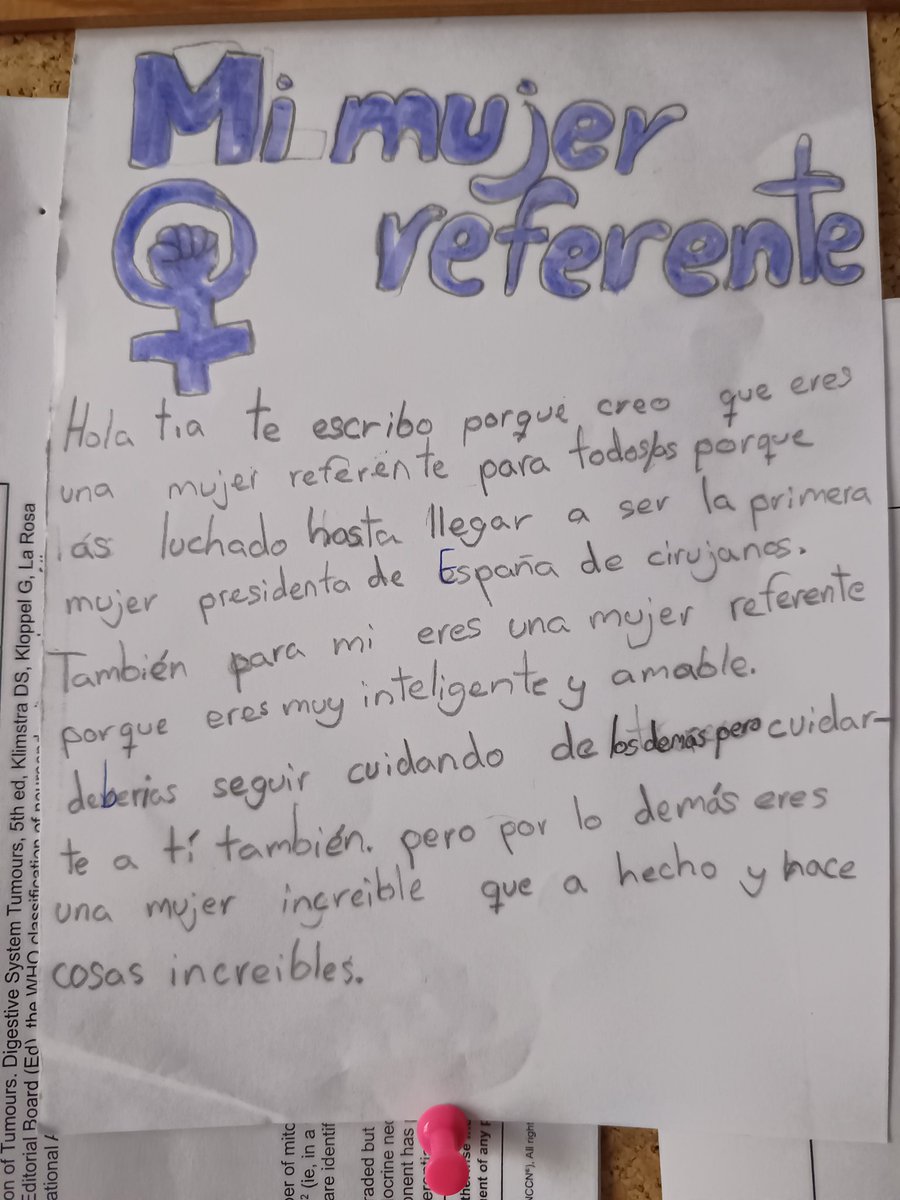 Mi mujer
referente
Hola tia te escribo porque creo que eres
una mujer referente para todos/as porque
ás luchado hasta llegar a ser la primera
mujer presidenta de España de cirujanos.
También para mi eres una mujer referente
porque eres muy inteligente y amable.
deberias seguir cuidando de los demás pero cuidar-
te a tí también. pero por lo demás eres
una mujer increible que a hecho y hace
cosas increibles.
on of Tumours. Digestive System Tumours, 5th ed, Klimstra DS, Kloppel G, La Rosa
Editorial Board (Ed), the WHO classification of
ational
ber of mito
² (ie, in a
are identif
raded but
ocrine neo
onent has
ment of any p
NCCN®), All righ